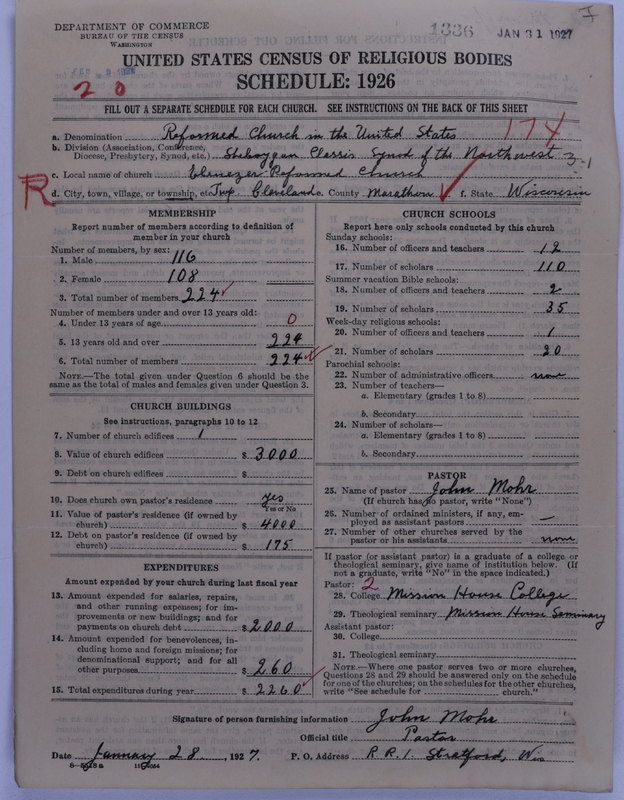 DEPARTMENT OF COMMERCE
BUREAU OF THE CENSUS
WASHINGTON
1336
JAN 31 1927
J
UNITED STATES CENSUS OF RELIGIOUS BODIES
SCHEDULE: 1926
2 0
FILL OUT A SEPARATE SCHEDULE FOR EACH CHURCH. SEE INSTRUCTIONS ON THE BACK OF THIS SHEET
a. Denomination Reformed Church in the United States 174
b. Division (Association, Conference,
Diocese, Presbytery, Synod, etc.) Sheboygan Classis Synod of the Northwest 3-1
c. Local name of church Ebenezer Reformed Church
R d. City, town, village, or township, etc. Twp Cleveland e. County Marathon f. State Wisconsin
MEMBERSHIP
Report number of members according to definition of
member in your church
Number of members, by sex:
1. Male 116
2. Female 108
3. Total number of members 224
Number of members under and over 13 years old:
4. Under 13 years of age 0
5. 13 years old and over 224
6. Total number of members 224
NOTE.—The total given under Question 6 should be the
same as the total of males and females given under Question 3.
CHURCH BUILDINGS
See instructions, paragraphs 10 to 12
7. Number of church edifices 1
8. Value of church edifices $ 3000
9. Debt on church edifices $
10. Does church own pastor's residence yes
Yes or No
11. Value of pastor's residence (if owned by
church) $ 4000
12. Debt on pastor's residence (if owned by
church) $ 175
EXPENDITURES
Amount expended by your church during last fiscal year
13. Amount expended for salaries, repairs,
and other running expenses; for im-
provements or new buildings; and for
payments on church debt $ 2000
14. Amount expended for benevolences, in-
cluding home and foreign missions; for
denominational support; and for all
other purposes $ 260
15. Total expenditures during year $ 2260
CHURCH SCHOOLS
Report here only schools conducted by this church
Sunday schools:
16. Number of officers and teachers 12
17. Number of scholars 110
Summer vacation Bible schools:
18. Number of officers and teachers 2
19. Number of scholars 35
Week-day religious schools:
20. Number of officers and teachers 1
21. Number of scholars 20
Parochial schools:
22. Number of administrative officers none
23. Number of teachers—
a. Elementary (grades 1 to 8)
b. Secondary
24. Number of scholars—
a. Elementary (grades 1 to 8)
b. Secondary
PASTOR
25. Name of pastor John Mohr
(If church has no pastor, write "None")
26. Number of ordained ministers, if any, em-
ployed as assistant pastors —
27. Number of other churches served by the
pastor or his assistants none
If pastor (or assistant pastor) is a graduate of a college or
theological seminary, give name of institution below. (If
not a graduate, write "No" in the space indicated.)
Pastor: 2
28. College Mission House College
29. Theological seminary Mission House Seminary
Assistant pastor:
30. College
31. Theological seminary
NOTE.—Where one pastor serves two or more churches,
Questions 28 and 29 should be answered only on the schedule
for one of the churches; on the schedules for the other churches,
write "See schedule for church."
Signature of person furnishing information John Mohr
Official title Pastor
Date January 28, 1927. P. O. Address R R 1. Stratford, Wis